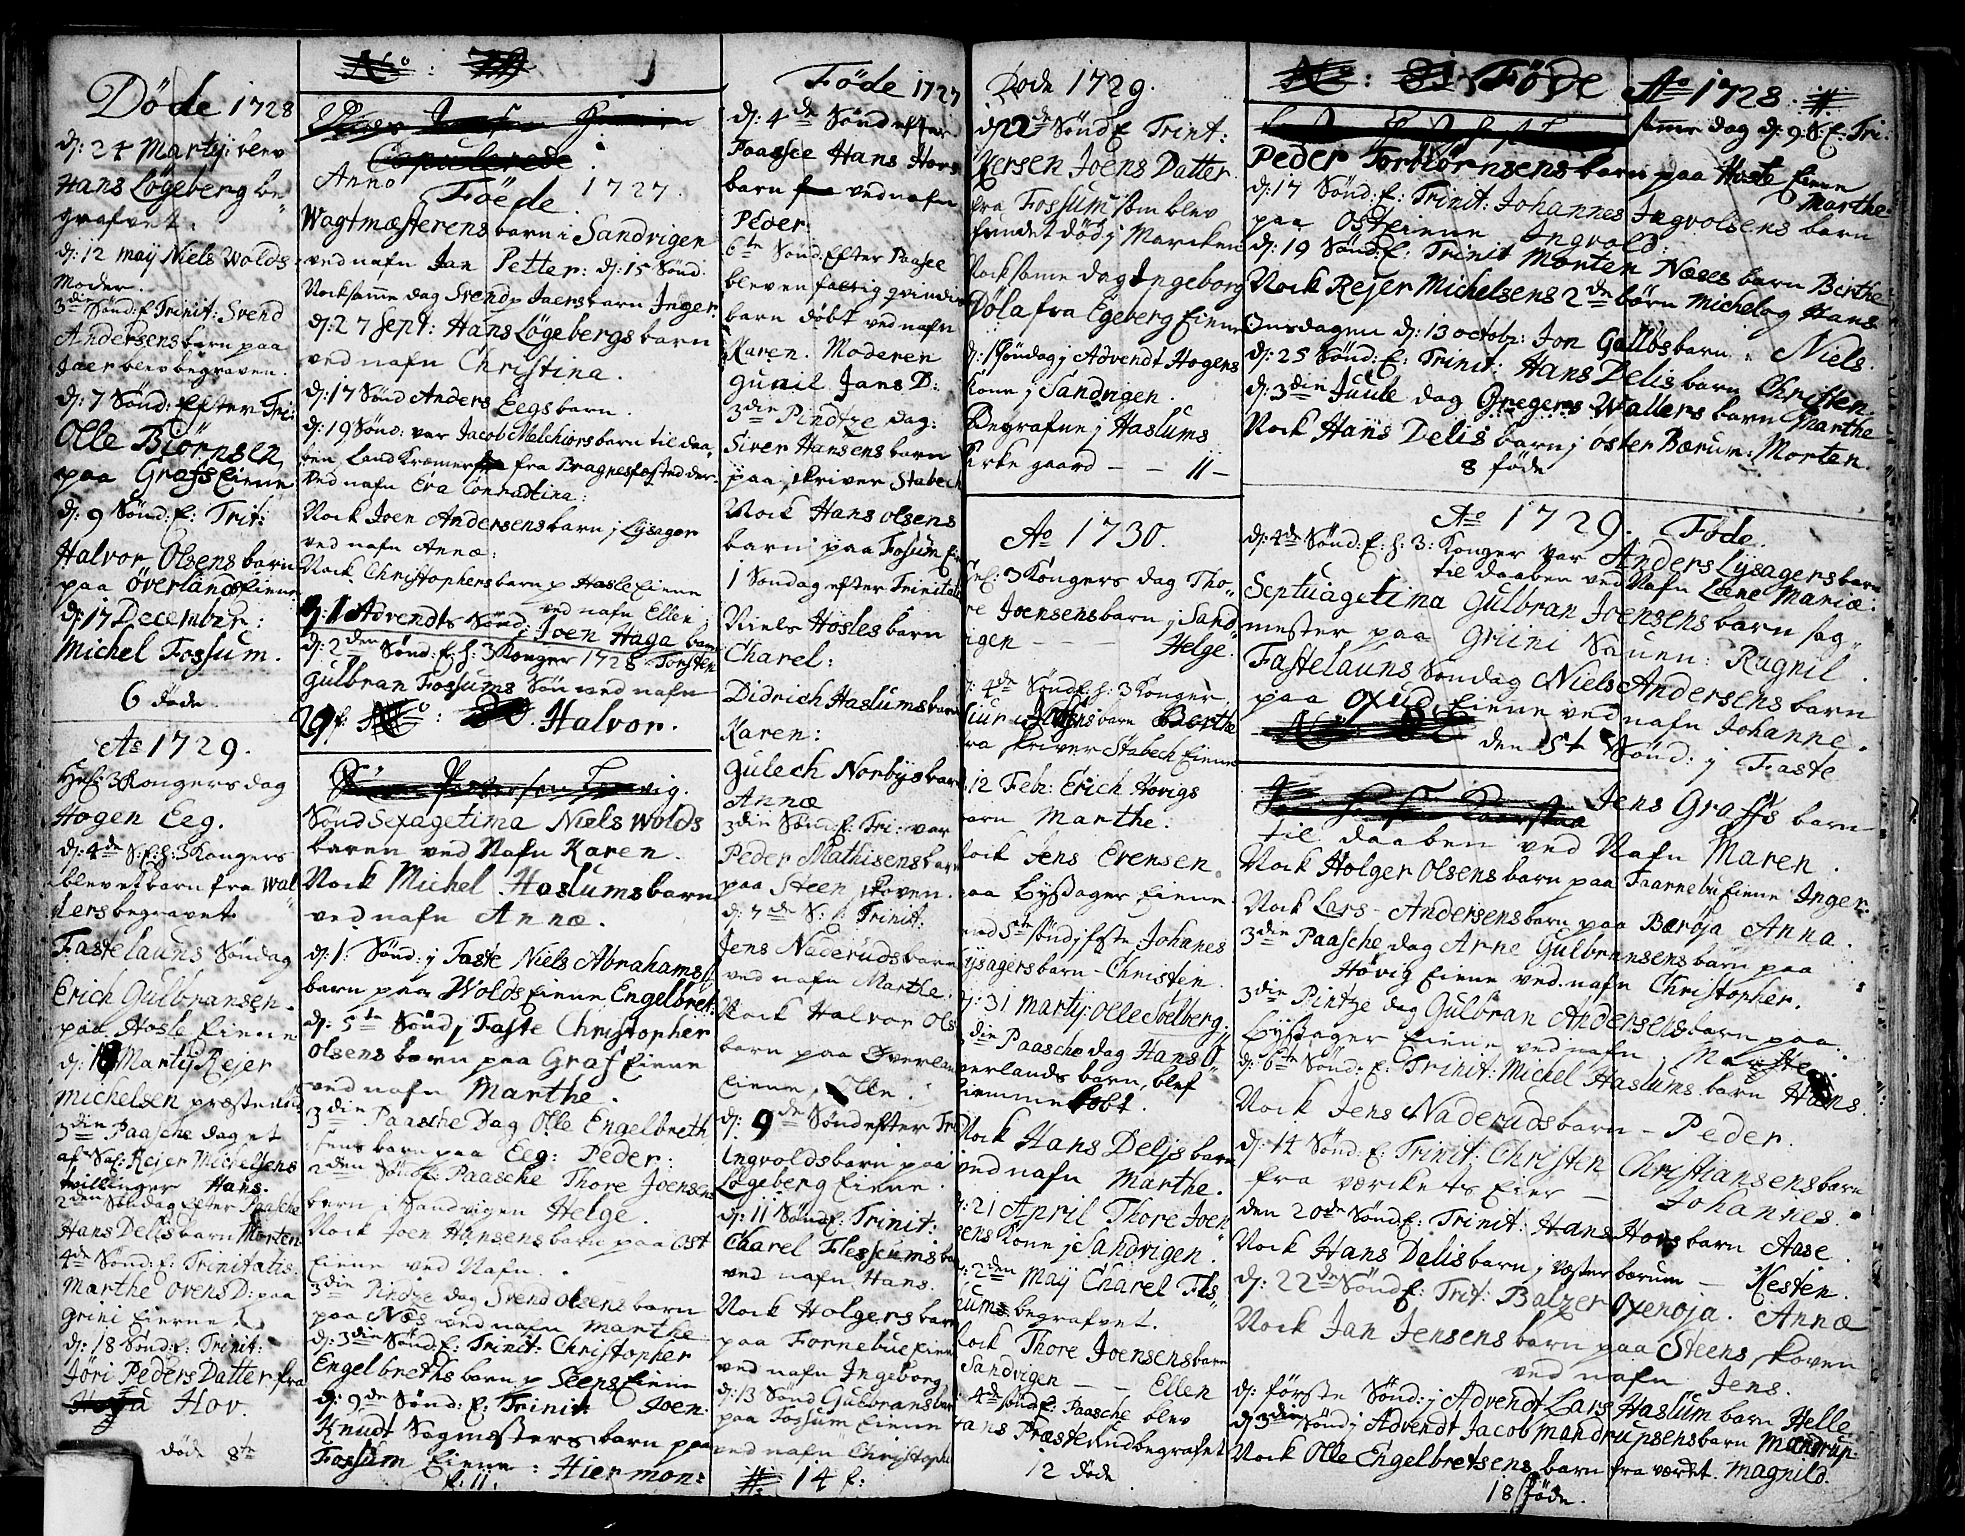 Døde 1728
dj: 24 Martij blev
Hans Løgeberg be-
grafvet.
dj: 12 maij Niels Wolds
Moder.
3die Sønd: E Trinit: Svend
Andersens barn paa
Jaer blev begraven.
dj: 7 Sønd: Efter Tri:
Olle Biörnsen
paa Grafs Eiene
dj: 9 Sønd: E: Trit:
Halvor Olsens barn
paa överlands Eiene
dj: 17 December:
Michel Fossum.
6 døde.
Ao 1729.
Hel: 3 Kongers dag
Hogen Eeg.
dj: 4de S: E: H: 3 Kongers
blev et barn fra Wal
lers begravet
Fastelauns Søndag
Erich Gulbransen
paa Hosle Eiene
Martij Rejer
Michelsen præsterud
3die Paasche dag et
af Sal: Reier Michelsens
tvillinger Hans.
2den Søndag efter Paasche
Hans Delis barn Morten
4de Sønd: E: Trinitatis:
Marthe Ovens D: paa
Grini Eierne
dj: 18 Sønd: E: Trinit:
Jöri Peders Datter fra
Hov.
døde 8te
No:
Copulerede
Anno 1727.
Föede
Wagtmæsterens barn i Sandvigen
ved nafn Jan Petter: dj: 15 Sønd:
Nock samme dag Svend p Jaers barn Inger
dj: 27 Sept: Hans Løgebergs barn
ved nafn Christina.
dj: 17 Sønd Anders Eegs barn.
dj: 19 Sønd: var Jacob Melchiors barn til daa-
ben Land Kræmer fra Bragnes fæsted der-
ved nafn Eva Conradtina:
Nock Joen Andersens barn j Lysager
ved nafn Annæ:
Nock Christophers barn p Hasle Eiene
ved nafn Ellen
dj: 1 Advendts Sønd: Joen Haga barn
dj: 2den Sønd: E: H: 3 Konger 1728 Torsten
Gulbran Fossums Søn ved nafn
29 f: No: Halvor.
Sønd Sexagetima Niels Wolds
baren ved Nafn Karen.
Nock Michel Haslums barn
ved nafn Annæ.
dj: 1: Sønd: j Faste Niels Abrahams
barn paa Wolds Eiene Engelbret:
dj: 5te Sønd j Faste Christopher
Olsens barn paa Graf Eiene
ved nafn Marthe.
3die Paasche Dag Olle Engelbreth
sens barn paa Eeg: Peder:
2den Sønd: E: Paasche Thore Joensens
barn i Sandvigen Helge.
Nock Joen Hansens barn paa Ost
Eiene ved Nafn.
3die Pindze dag Svend Olsens barn
paa Næs ved nafn Marthe
dj: 3die Sønd: E: Trinit: Christopher
Engelbreths barn p Steens Eiene
dj: 9de Sønd: E: Trinit: Joen:
Knudt Sagmæsters barn paa
Fossum Eiene: Hiermon:
f: 11.
Föde 1727
dj: 4de Sønd efter
Paasce Hans Hovs
barn ved nafn
Peder
6te Sønd: Efter Paasce
bleven fattig qvindes
barn döbt ved nafn
Karen. Moderen
Gunil Jans D:
3die Pindtze dag:
Siver Hansens barn
paa skriver Stabech
Nock Hans Olsens
barn paa Fossum Ei
1 Søndag efter Trinitatis
Niels Hosles barn
Charel:
Didrich Haslums barn
Karen:
Gulech Norbÿs barn
Annæ
3die Sønd: E: Tri: var
Peder Mathisens barn
paa Steen skoven.
dj: 7de S: E: Trinit:
Jens Naderuds barn
ved nafn Marthe.
Nock Halvor Ols
barn paa Øverlan
Eiene, Olle.
dj: 9de Sønd efter Tri
Ingvolds barn paa
Løgeberg Eiene.
dj: 11 Sønd: E: Trinit:
Charel Flessums ba
ved nafn Hans.
Nock Holgers barn
paa Fornebue Eiene
ved nafn Ingeborg
dj: 13 Sønd Gulbrans barn
paa Fossum Eiene
ved nafn Christoph
14 f:
Døde 1729.
dj 22de Sønd E Trint:
Kersen Joens Datter
fra Fossum som blev
fundet död j Marcken
Nock same dag Ingeborg
Döla fra Egeberg Eiene
dj: 1 Søndag j Advendt Hogens
Kone j Sandvigen.
Begrafne j Haslums
Kirke gaard — — 11 —
Ao 1730.
Hel: 3 Kongers dag Tho-
re Joensens barn j Sand
vigen — — Helge.
dj: 4de Sønd: E: H: 3 Konger
barn Berthe
fra skriver Stabech Eiene
12 Febr: Erich Hövigs
barn Marthe.
Nock Jens Evensen
paa Lysager Eiene.
ved 5te Sønd j faste Johanes
Lysagers barn — Christen
dj: 31 Martij Olle Soelberg
3die Paasche dag Hans Ö-
verlands barn, blef
hiemme döbt.
Nock Hans Delis barn
ved nafn Marthe.
dj: 21 April Thore Joen
sens Kone j Sandvigen.
dj: 2den Maij Charel Fles-
sums begrafvet.
Nock Thore Joensens barn
Sandvigen — — Ellen
4de Sønd E: Paasche blev
Hans Præsterud begrafvet
12 døde
Föde Ao 1728.
samme dag dj: 9: S: E: Tri:
Peder Torbiörnsens barn paa Hosle Eiene
Marthe
dj: 17 Sønd: E: Trinit: Johannes Ingvolsens barn
paa Ost eiene Ingvold.
dj: 19 Sønd: E: Trinit Morten Næses barn Birthe
Nock Rejer Michelsens 2de börn Michel og Hans
Onsdagen dj: 13 octobr: Jon Galbos barn: Niels.
dj: 25 Sønd: E: Trinit: Hans Delis barn Christen.
dj: 3die Juule dag Gregers Wallers barn Marthe
Nock Hans Delis barn j öster Bærum: Morten.
8 föde
Ao 1729. Føde.
dj: 4de Sønd: E: H: 3: Konger var Anders Lysagers barn
til daaben ved Nafn Lene Mariæ:
Septuagetima Gulbran Joensens barn sag-
mester paa Griini Sauen: Ragnil
Fastelauns Søndag Niels Andersens barn
paa Oxud Eiene ved nafn Johanne.
den 5te Sønd: j Faste
Jens Grafs barn
til daaben ved Nafn Maren.
Nock Holger Olsens barn paa Faarnebu Eiene Inger.
Nock Lars Andersens barn paa Bærøja Anna.
3die Paasche dag Arne Gulbransens barn paa
Høvig Eiene ved nafn Christopher.
3die Pintze dag Gulbran Andersens barn paa:
Lysager Eiene ved nafn
dj: 6te Sønd: E: Trinit: Michel Haslums barn Hans.
Nock Jens Naderuds barn — Peder.
dj: 14 Sønd: E: Trinit: Christen Christiansens barn
fra værckets Eier — Johannes.
den 20de Sønd: E: Trinit: Hans Hovs barn Aase
Nock Hans Delis barn j Væster barum — Kesten.
dj: 22de Sønd: E: Trit: Balzer Oxenøja. Annæ
Nock Jan Jensens barn paa Steens skoven
ved nafn Jens.
dj: förste Sønd: j Advendt Lars Haslum barn Helle
dj 3die Sønd j Advendt Jacob Mandrupsens barn Mandrup
Nock Olle Engelbretsens barn fra værcket. Magnild.
18 föde.